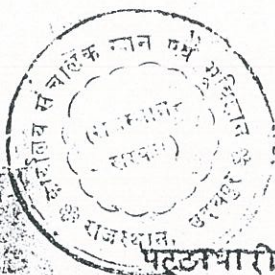 कार्यालय संचालक खान एवं भूविज्ञान
राजस्थान, उदयपुर
(राजस्थान
सरकार)
पट्टाधारी